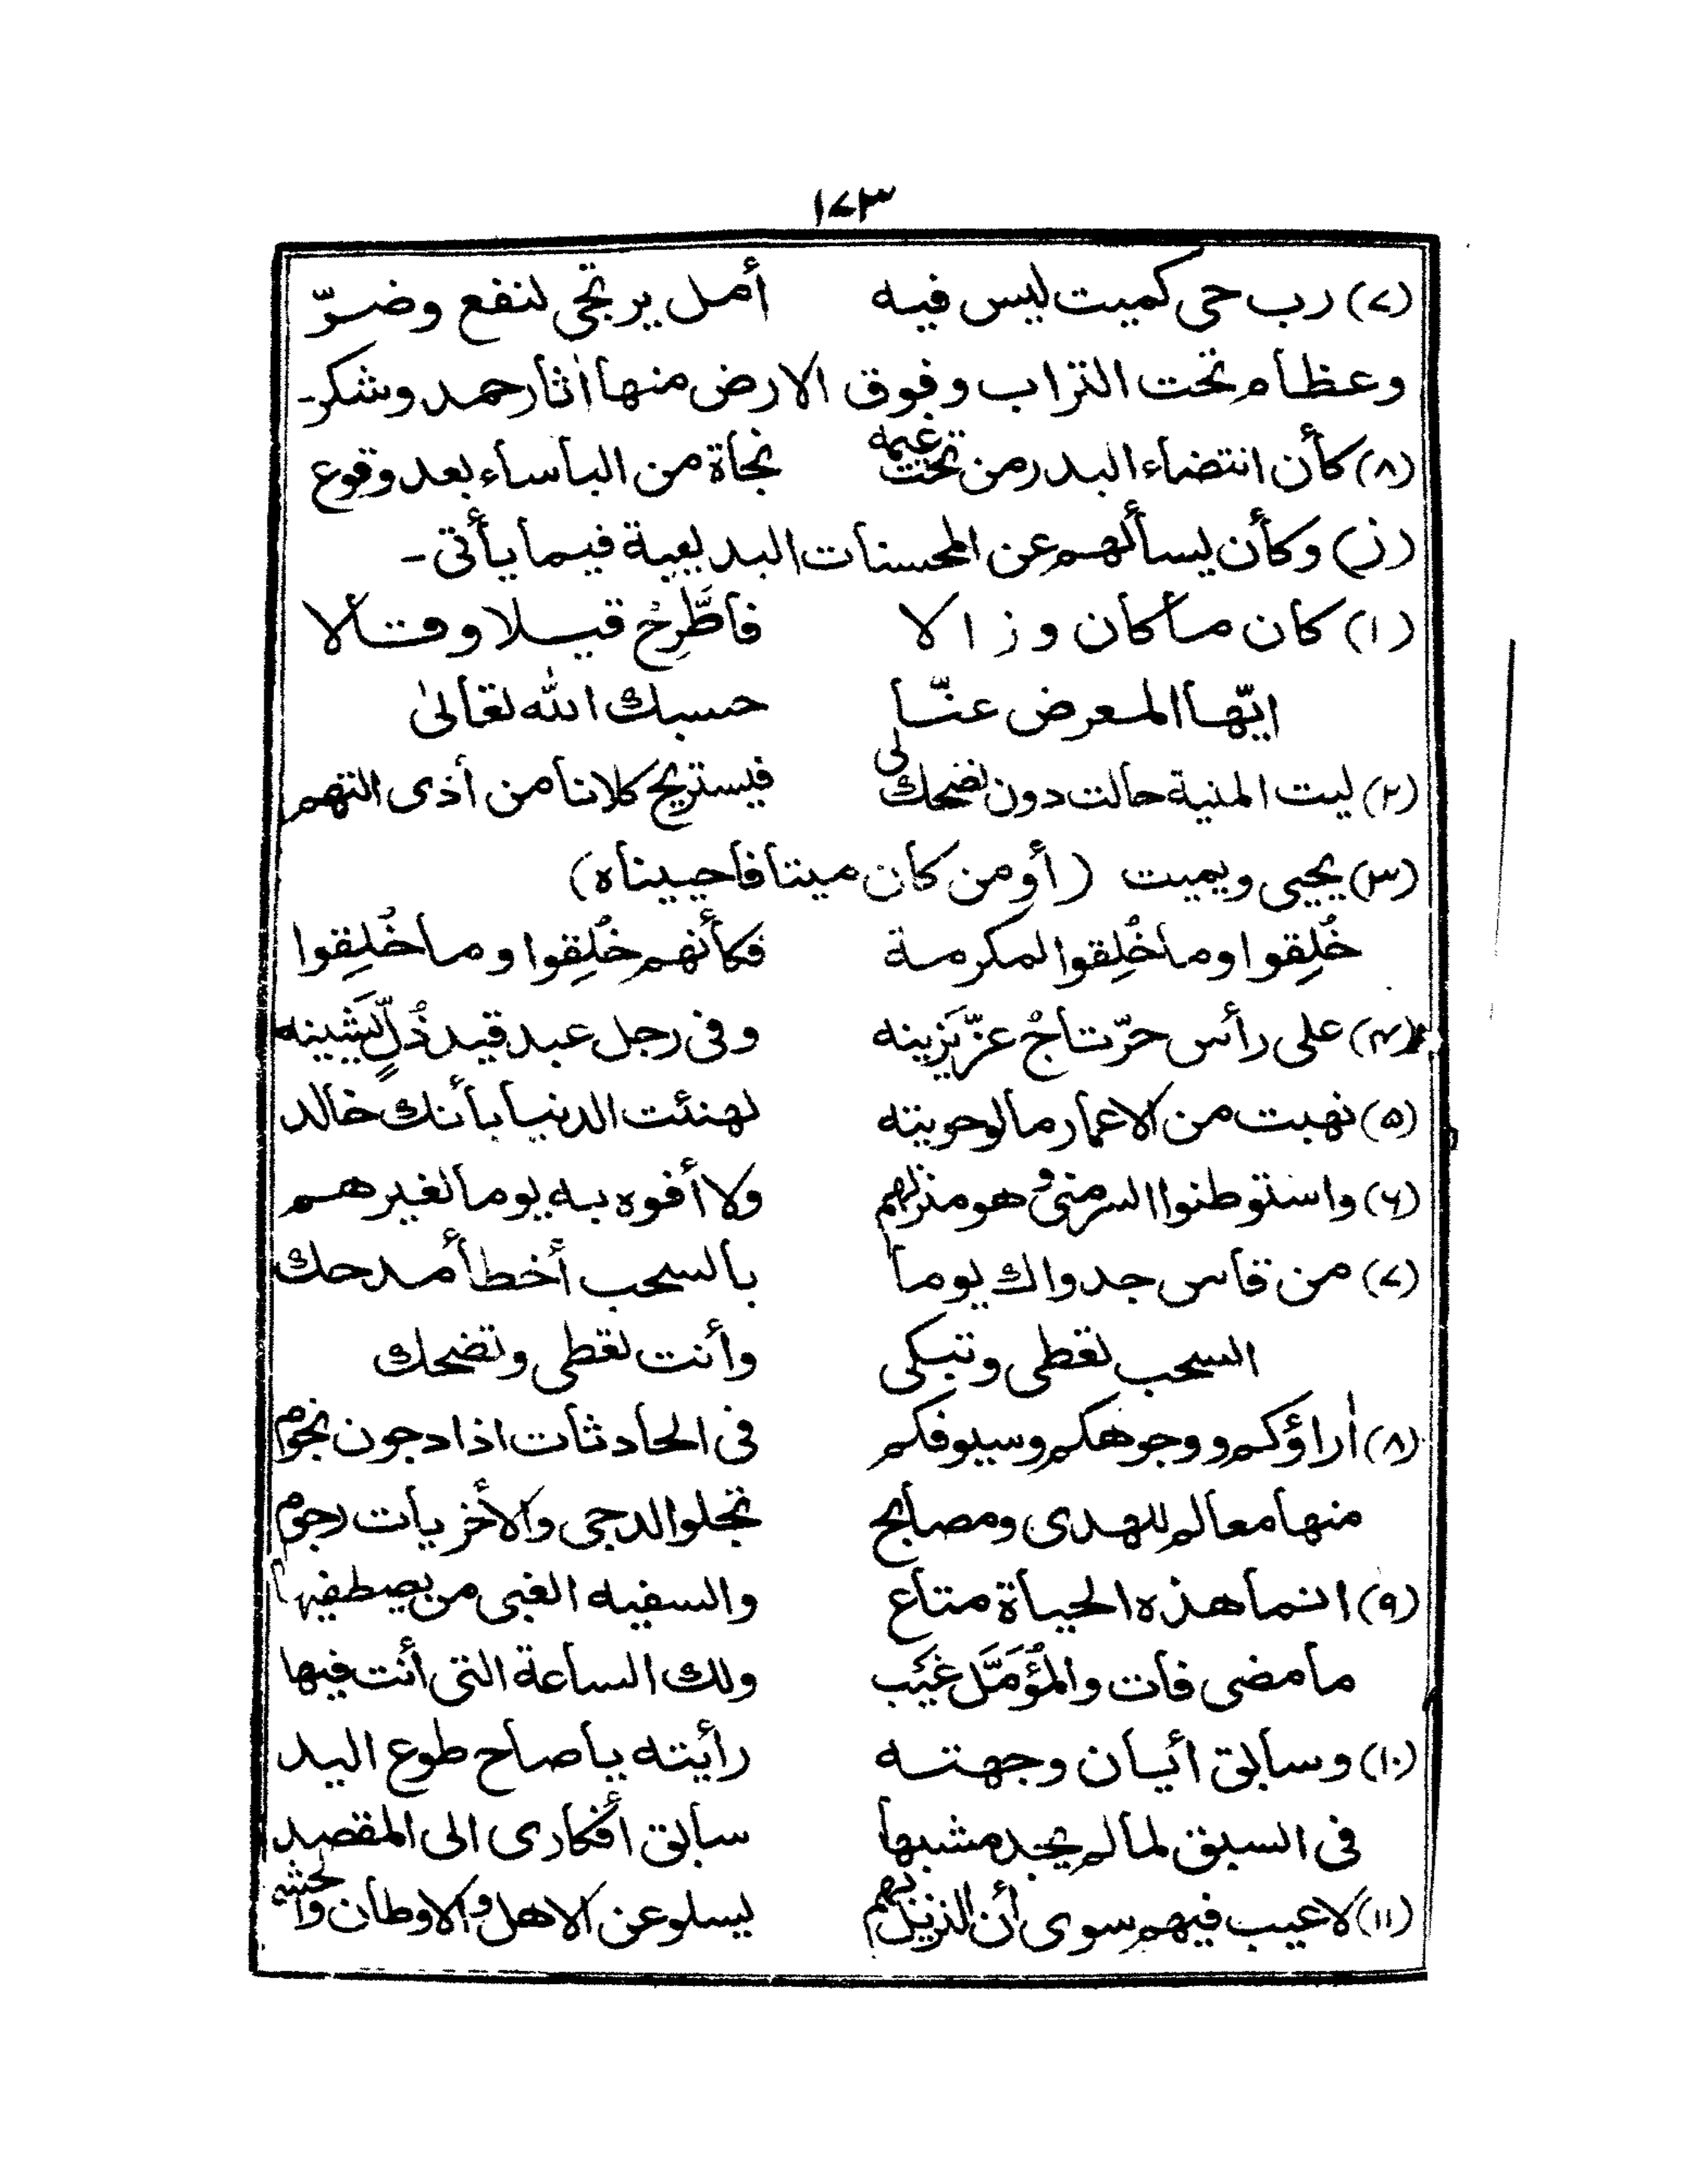 ١٧٣
(٧) رب حي كميت ليس فيه أمل يرتجى لنفع وضرّ
وعظام تحت التراب وفوق الارض منها اٰثار حمد وشكر-
(٨) كأن انتضاء البدر من تحت غيمه نجاة من البأساء بعد وقوع
(ز) وكأن يسألهم عن المحسنات البديعية فيما يأتى-
(١) كان ما كان وزالا فاطَّرِحْ قيلا وقالا
ايّها المعرض عنّا حسبك الله تعالىٰ
(٢) ليت المنية حالت دون نصحك لى فيستريح كلانا من أذى التهم
(٣) يحيى ويميت (أو من كان ميتا فاحييناه)
خُلِقوا وما خُلِقوا لمكرمة فكأنهم خُلِقوا وما خُلِقوا
(٤) على رأس حرّ تاجُ عزّ يَزينه وفى رجل عبد قيد ذُلٍّ يَشينه
(٥) نهبت من الاعمار ما لو حويته لهنئت الدنيا بأنك خالد
(٦) واستوطنوا السر منى وهو منزلهم ولا أفوه به يوما لغيرهم
(٧) من قاس جدواك يوما بالسحب أخطأ مدحك
السحب تعطى وتبكى وأنت تعطى وتضحك
(٨) اٰراؤكم ووجوهكم وسيوفكم فى الحادثات اذا دجون نجوم
منها معالم للهدى ومصابح تجلو الدجى والأخريات رجوم
(٩) انما هذه الحياة متاع والسفيه الغبى من يصطفيها
ما مضى فات والمُؤَمَّل غَيْب ولك الساعة التى أنت فيها
(١٠) وسابق أيان وجهته رأيته ياصاح طوع اليد
فى السبق لما لم يجد مشبها سابق أفكارى الى المقصد
(١١) لا عيب فيهم سوى أن النزيل بهم يسلو عن الاهل والاوطان والحشم